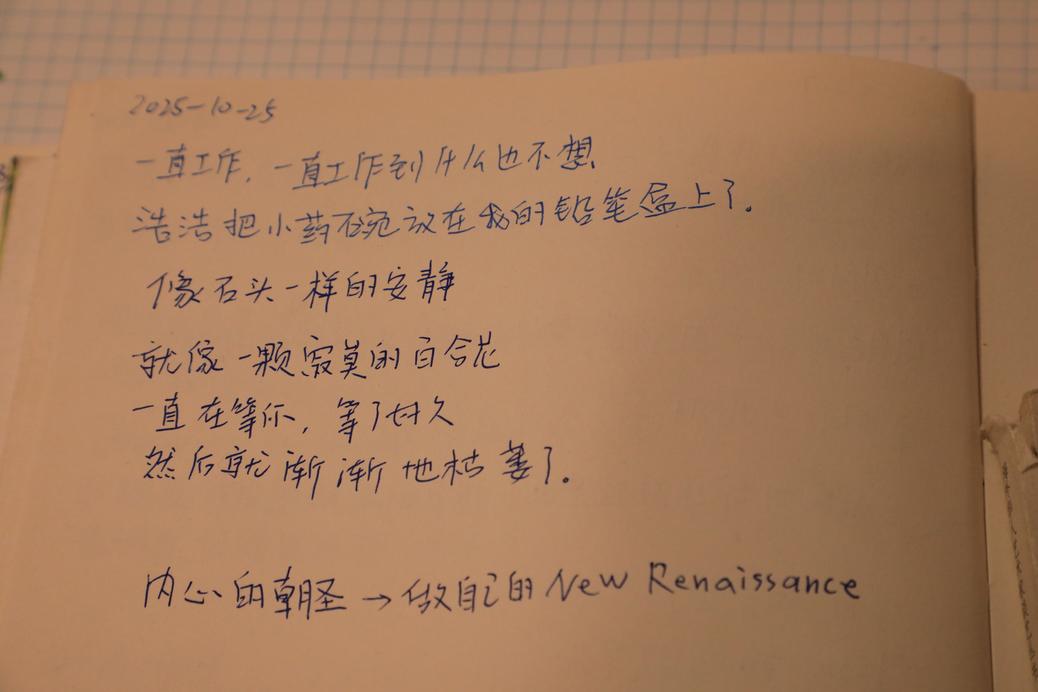 2025-10-25
一直工作，一直工作到什么也不想
浩浩把小药碗放在我的铅笔盒上了。
像石头一样的安静
就像一颗寂寞的百合花
一直在等你，等了好久
然后就渐渐地枯萎了。
内心的朝圣→做自己的New Renaissance